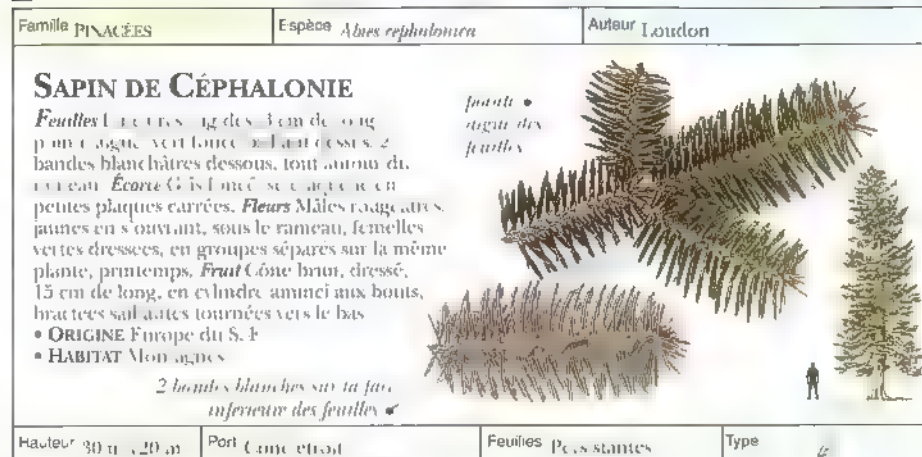 Famille PINACÉES Espèce Abies cephalonica Auteur Loudon
SAPIN DE CÉPHALONIE
Feuilles 3 cm de long
vert foncé dessus, 2
bandes blanchâtres dessous, tout autour du
rameau Écorce Gris foncé, se craquelant en
petites plaques carrées. Fleurs Mâles rougeâtres,
jaunes en s'ouvrant, sous le rameau, femelles
vertes dressées, en groupes séparés sur la même
plante, printemps. Fruit Cône brun, dressé,
15 cm de long, en cylindre aminci aux bouts,
bractées saillantes tournées vers le bas
• ORIGINE Europe du S.-E.
• HABITAT Montagnes
pointe •
aiguë des
feuilles
2 bandes blanches sur la face
inférieure des feuilles •
Hauteur 30 m Port Cône étroit Feuilles Persistantes Type